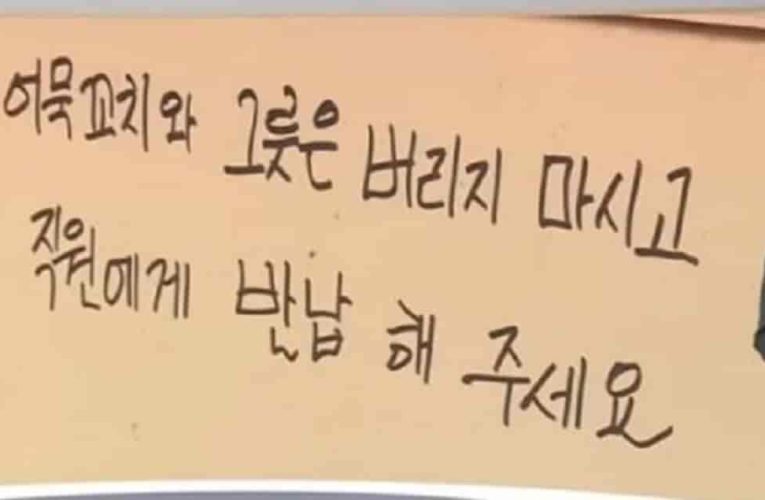 어묵꼬치와 그릇은 버리지 마시고
직원에게 반납 해 주세요